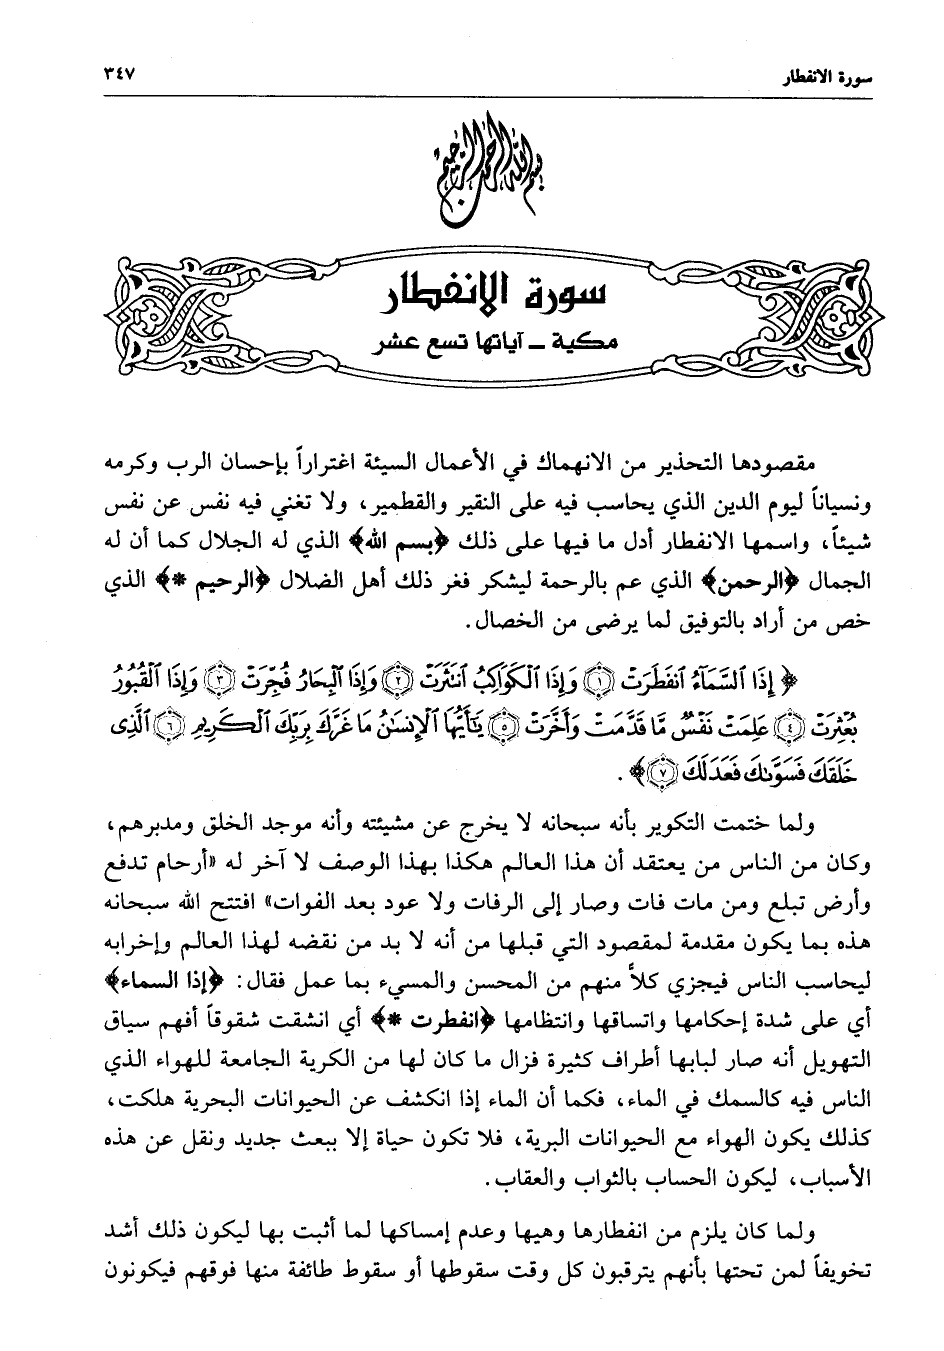 سورة الانفطار ٣٤٧
بسم الله الرحمن الرحيم
سورة الانفطار
مكية – آياتها تسع عشر
مقصودها التحذير من الانهماك في الأعمال السيئة اغتراراً بإحسان الرب وكرمه
ونسياناً ليوم الدين الذي يحاسب فيه على النقير والقطمير، ولا تغني فيه نفس عن نفس
شيئاً، واسمها الانفطار أدل ما فيها على ذلك ﴿بسم الله﴾ الذي له الجلال كما أن له
الجمال ﴿الرحمن﴾ الذي عم بالرحمة ليشكر فغر ذلك أهل الضلال ﴿الرحيم *﴾ الذي
خص من أراد بالتوفيق لما يرضى من الخصال.
﴿ إِذَا ٱلسَّمَآءُ ٱنفَطَرَتْ ﴿١﴾ وَإِذَا ٱلْكَوَاكِبُ ٱنتَثَرَتْ ﴿٢﴾ وَإِذَا ٱلْبِحَارُ فُجِّرَتْ ﴿٣﴾ وَإِذَا ٱلْقُبُورُ
بُعْثِرَتْ ﴿٤﴾ عَلِمَتْ نَفْسٌ مَّا قَدَّمَتْ وَأَخَّرَتْ ﴿٥﴾ يَٰٓأَيُّهَا ٱلْإِنسَٰنُ مَا غَرَّكَ بِرَبِّكَ ٱلْكَرِيمِ ﴿٦﴾ ٱلَّذِى
خَلَقَكَ فَسَوَّىٰكَ فَعَدَلَكَ ﴿٧﴾ ﴾.
ولما ختمت التكوير بأنه سبحانه لا يخرج عن مشيئته وأنه موجد الخلق ومدبرهم،
وكان من الناس من يعتقد أن هذا العالم هكذا بهذا الوصف لا آخر له «أرحام تدفع
وأرض تبلع ومن مات فات وصار إلى الرفات ولا عود بعد الفوات» افتتح الله سبحانه
هذه بما يكون مقدمة لمقصود التي قبلها من أنه لا بد من نقضه لهذا العالم وإخرابه
ليحاسب الناس فيجزي كلاً منهم من المحسن والمسيء بما عمل فقال: ﴿إذا السماء﴾
أي على شدة إحكامها واتساقها وانتظامها ﴿انفطرت *﴾ أي انشقت شقوقاً أفهم سياق
التهويل أنه صار لبابها أطراف كثيرة فزال ما كان لها من الكرية الجامعة للهواء الذي
الناس فيه كالسمك في الماء، فكما أن الماء إذا انكشف عن الحيوانات البحرية هلكت،
كذلك يكون الهواء مع الحيوانات البرية، فلا تكون حياة إلا ببعث جديد ونقل عن هذه
الأسباب، ليكون الحساب بالثواب والعقاب.
ولما كان يلزم من انفطارها وهيها وعدم إمساكها لما أثبت بها ليكون ذلك أشد
تخويفاً لمن تحتها بأنهم يترقبون كل وقت سقوطها أو سقوط طائفة منها فوقهم فيكونون